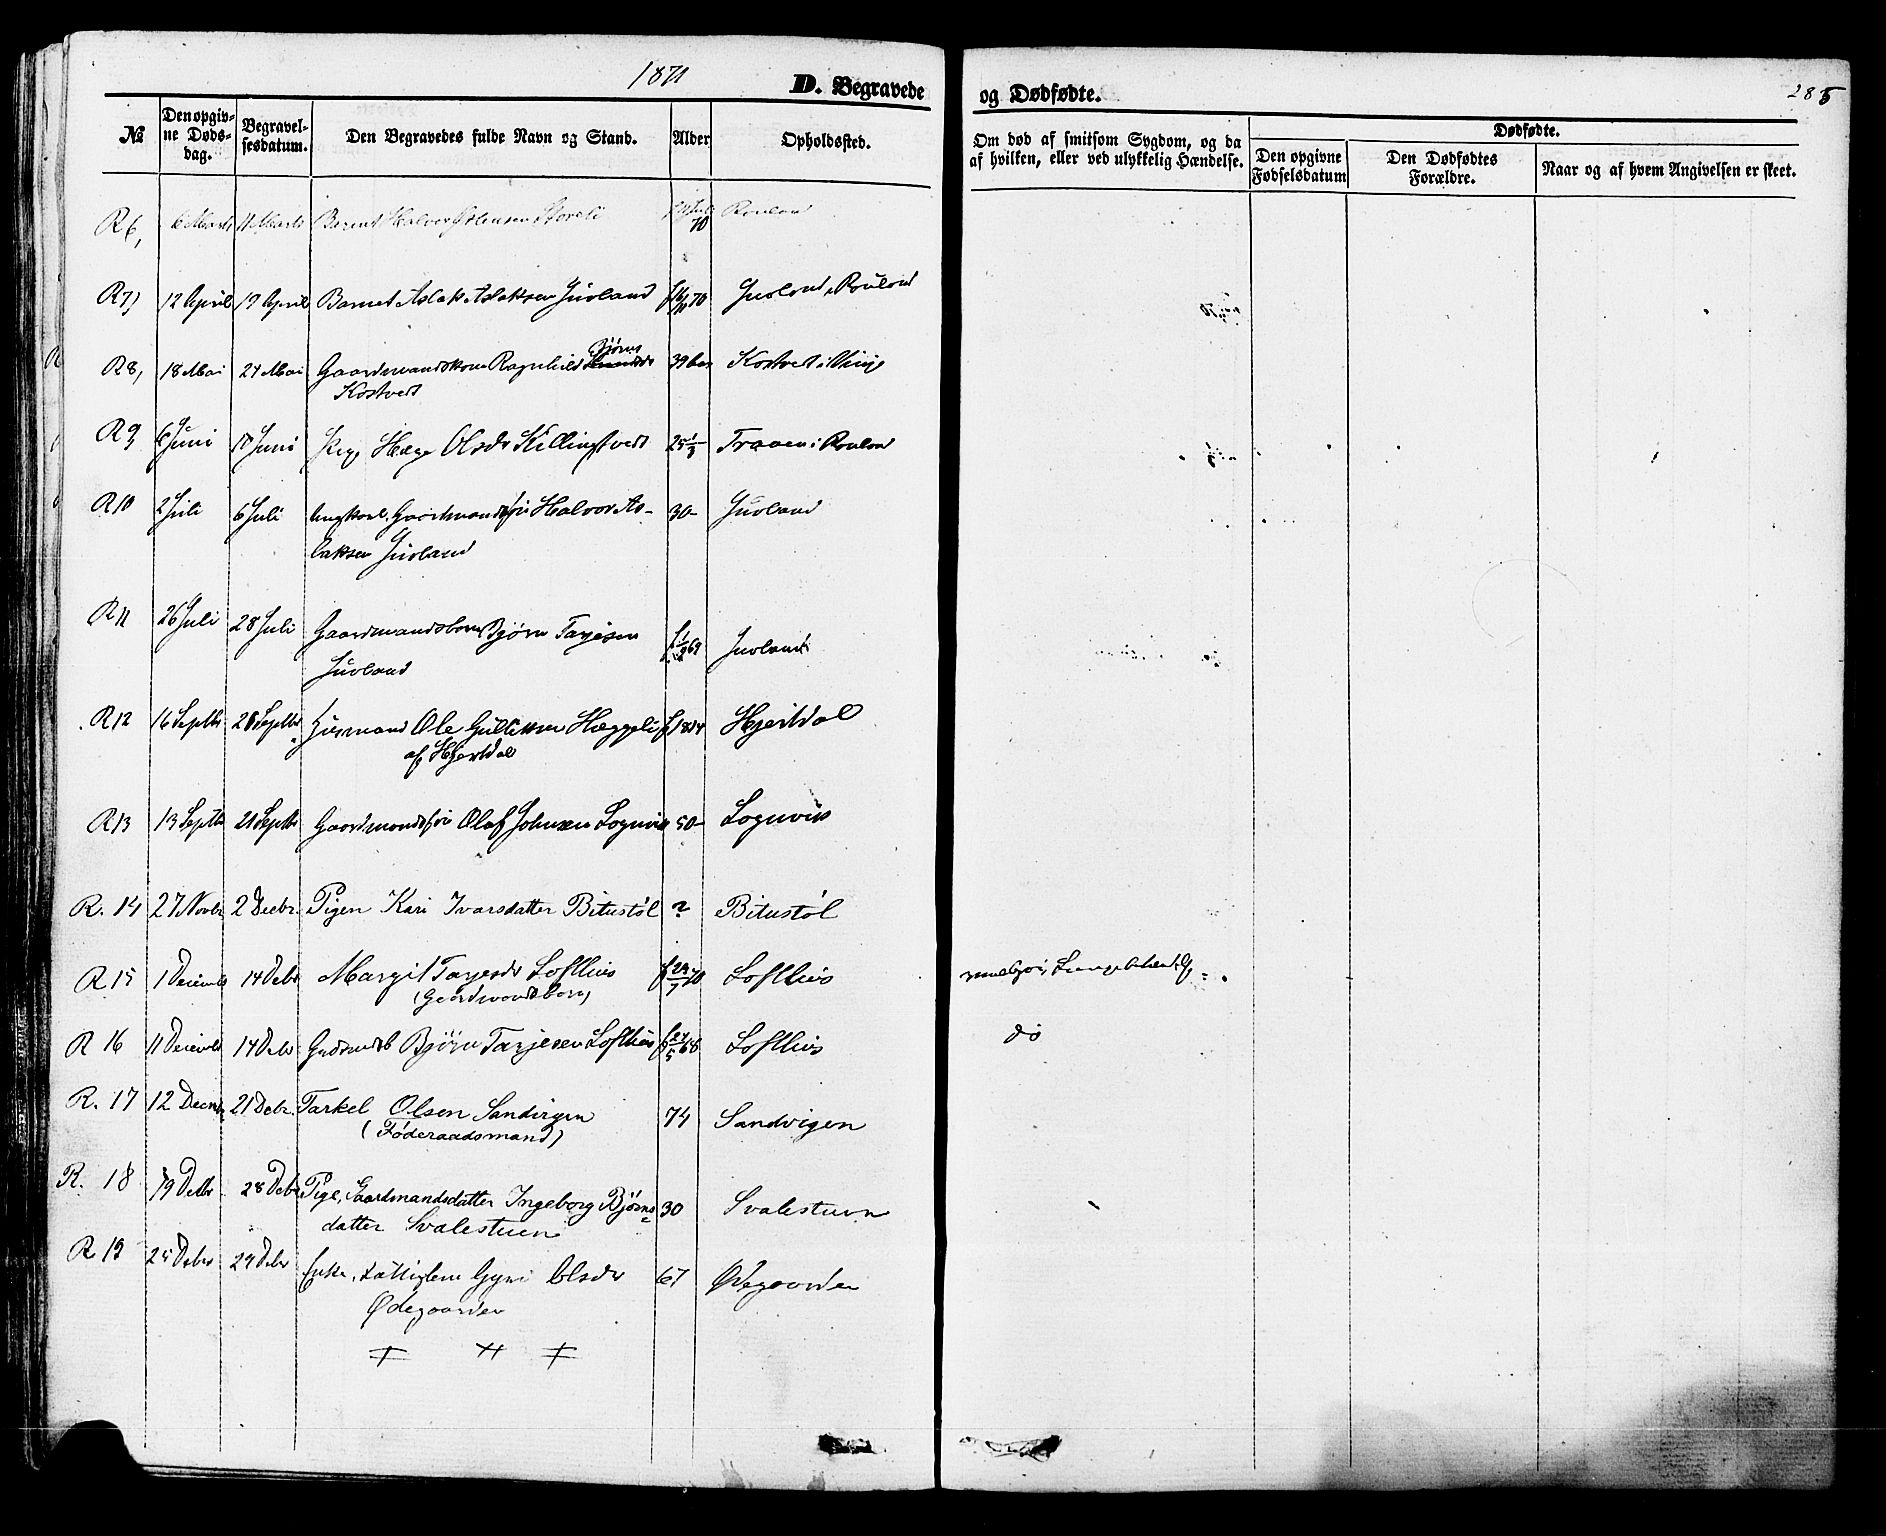 1871
D. Begravede
og Dødfødte.
285
№
Den opgiv-
ne Døds-
dag.
Begravel-
sesdatum.
Den Begravedes fulde Navn og Stand.
Alder
Opholdssted.
Om død af smitsom Sygdom, og da
af hvilken, eller ved ulykkelig Hændelse.
Dødfødte.
Den opgivne
Fødselsdatum
Den Dødfødtes
Forældre.
Naar og af hvem Angivelsen er skeet.
R6, 6 Marts 11 Marts Barnet Halvor 70
R7, 12 April 19 April Barnet Aslak Aslaksen Juvland 70 Juvland i Rauland
R8, 18 Mai 24 Mai Gaardmandskone Ragnhild Bjørns 39 Kostvedt i Vinje
Kostvedt
R9, 6 Juni 10 Juni Pige Hæge Olsdr Killingtvedt 25 1/3 Traaen i Rauland
R10 2 Juli 6 Juli Ungkarl, Gaardmandssøn Halvor As- 30 Juvland
laksen Juvland
R11 26 Juli 28 Juli Gaardmandsbarn Bjørn Tarjesen 69 Juvland
Juvland
R12 16 Septbr 28 Septbr Husmand Ole Gulliksen Hæggeli f 1814 Hjertdal
af Hjertdal
R13 13 Septbr 21 Septbr Gaardmandssøn Olaf Johnsen Lognvik 50 Lognvik
R. 14 27 Novbr 2 Decbr. Pigen Kari Ivarsdatter Bitustøl ? Bitustøl
R15 1 Decemb 14 Debr Margit Tarjesdr Lofthus f 29/7 70 Lofthus
(Gaardmandsbarn)
R 16 11 Decemb 14 Debr Bjørn Tarjesen Lofthus f 27/5 68 Lofthus do
R. 17 12 Decmbr 21 Debr. Tarkel Olsen Sandvigen 74 Sandvigen
(Føderaadsmand)
R. 18 19 Debr 28 Debr Pige, Gaardmandsdatter Ingeborg Bjørns= 30 Svalestuen
datter Svalestuen
R. 19 25 Debr 29 Debr Enke, Fattiglem Gyri Olsdr 67 Ødegaarden
Ødegaarden